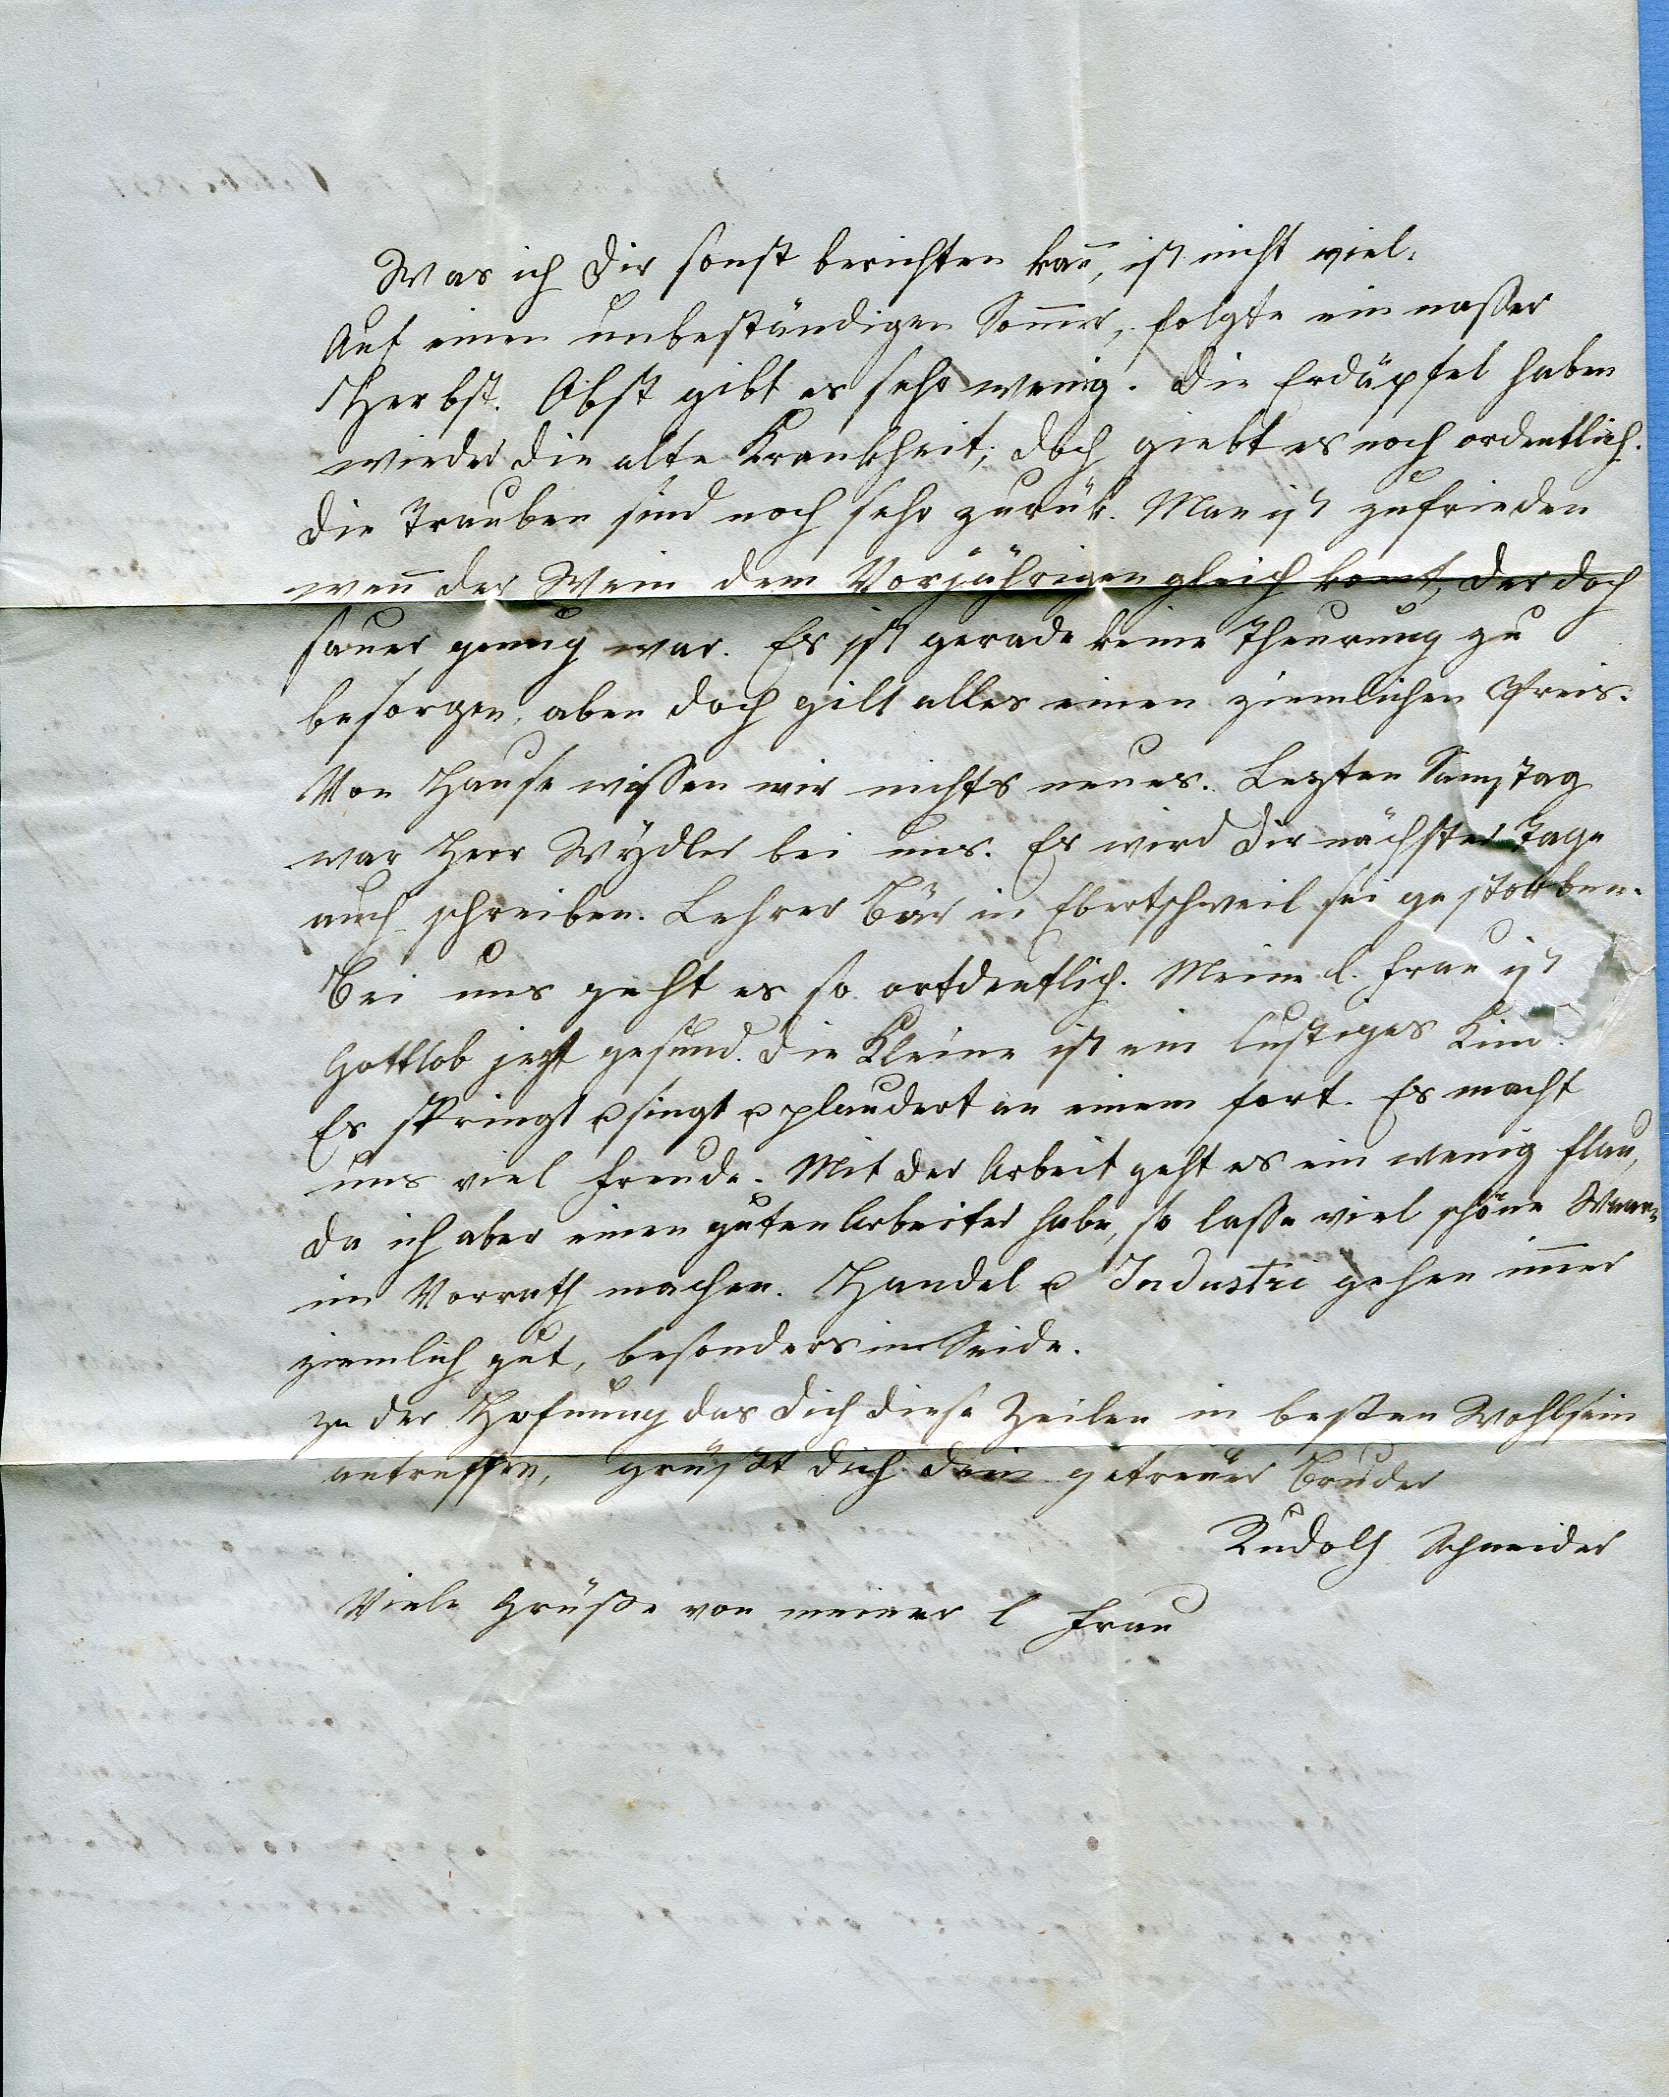 Was ich dir sonst berichten kan̄, ist nicht viel.
Auf einen unbeständigen Som̄er, folgte ein naßer
Herbst. Obst gibt es sehr wenig. Die Erdäpfel haben
wieder die alte Krankheit; doch giebt es noch ordentlich.
Die Trauben sind noch sehr zurük. Man ist zufrieden
wen̄ der Wein dem Vorjährigen gleich komt, der doch
sauer genug war. Es ist gerade keine Theurung zu
besorgen, aber doch gilt alles einen ziemlichen Preis.
Von Hause wissen wir nichts neues. Lezten Samstag
war Herr Wÿdler bei uns. Er wird dir nächster Tage
auch schreiben. Lehrer Bär in Ebertschweil sei gestorben.
Bei uns geht es so ortdentlich. Meine l. Frau ist
Gottlob jezt gesund. Die Kleine ist ein lustiges Kind.
Es springt u singt u plaudert an einem fort. Es macht
uns viel Freude. Mit der Arbeit geht es ein wenig flau,
da ich aber einen guten Arbeiter habe, so laße viel schöne Waare
im Vorrath machen. Handel u Industri gehen im̄er
ziemlich gut, besonders in Seide.
In der Hofnung das dich diese Zeilen in besten Wohlsein
antreffen, grüßt dich dein getreuer Bruder
Rudolf Schneider
Viele Grüße von meiner l Frau